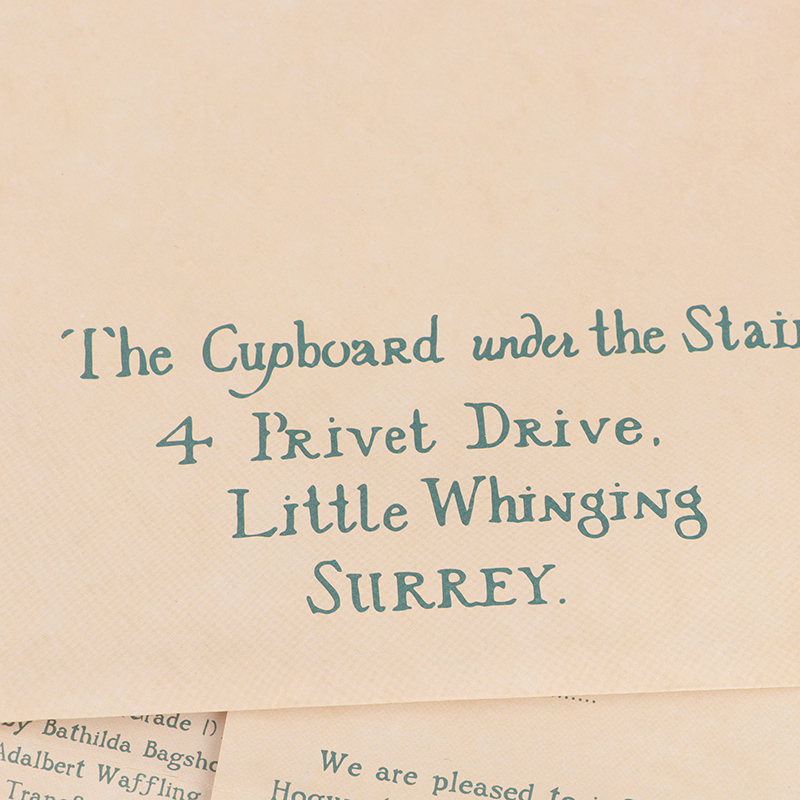 The Cupboard under the Stair
4 Privet Drive,
Little Whinging
SURREY.
by Bathilda Bagsho
Adalbert Waffling
We are pleased to